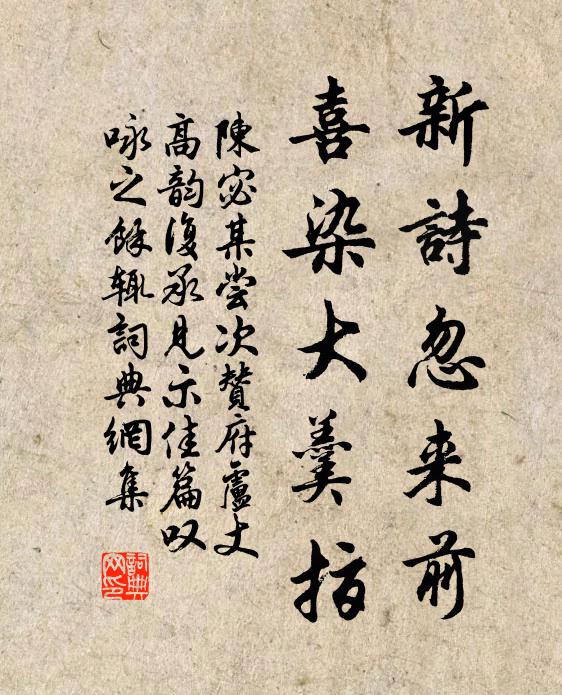 新詩忽来前
喜染大羹指
陳宓某嘗次贊府盧丈
高韵復承見示佳篇叹
咏之餘辄詞典網集
詞典网印